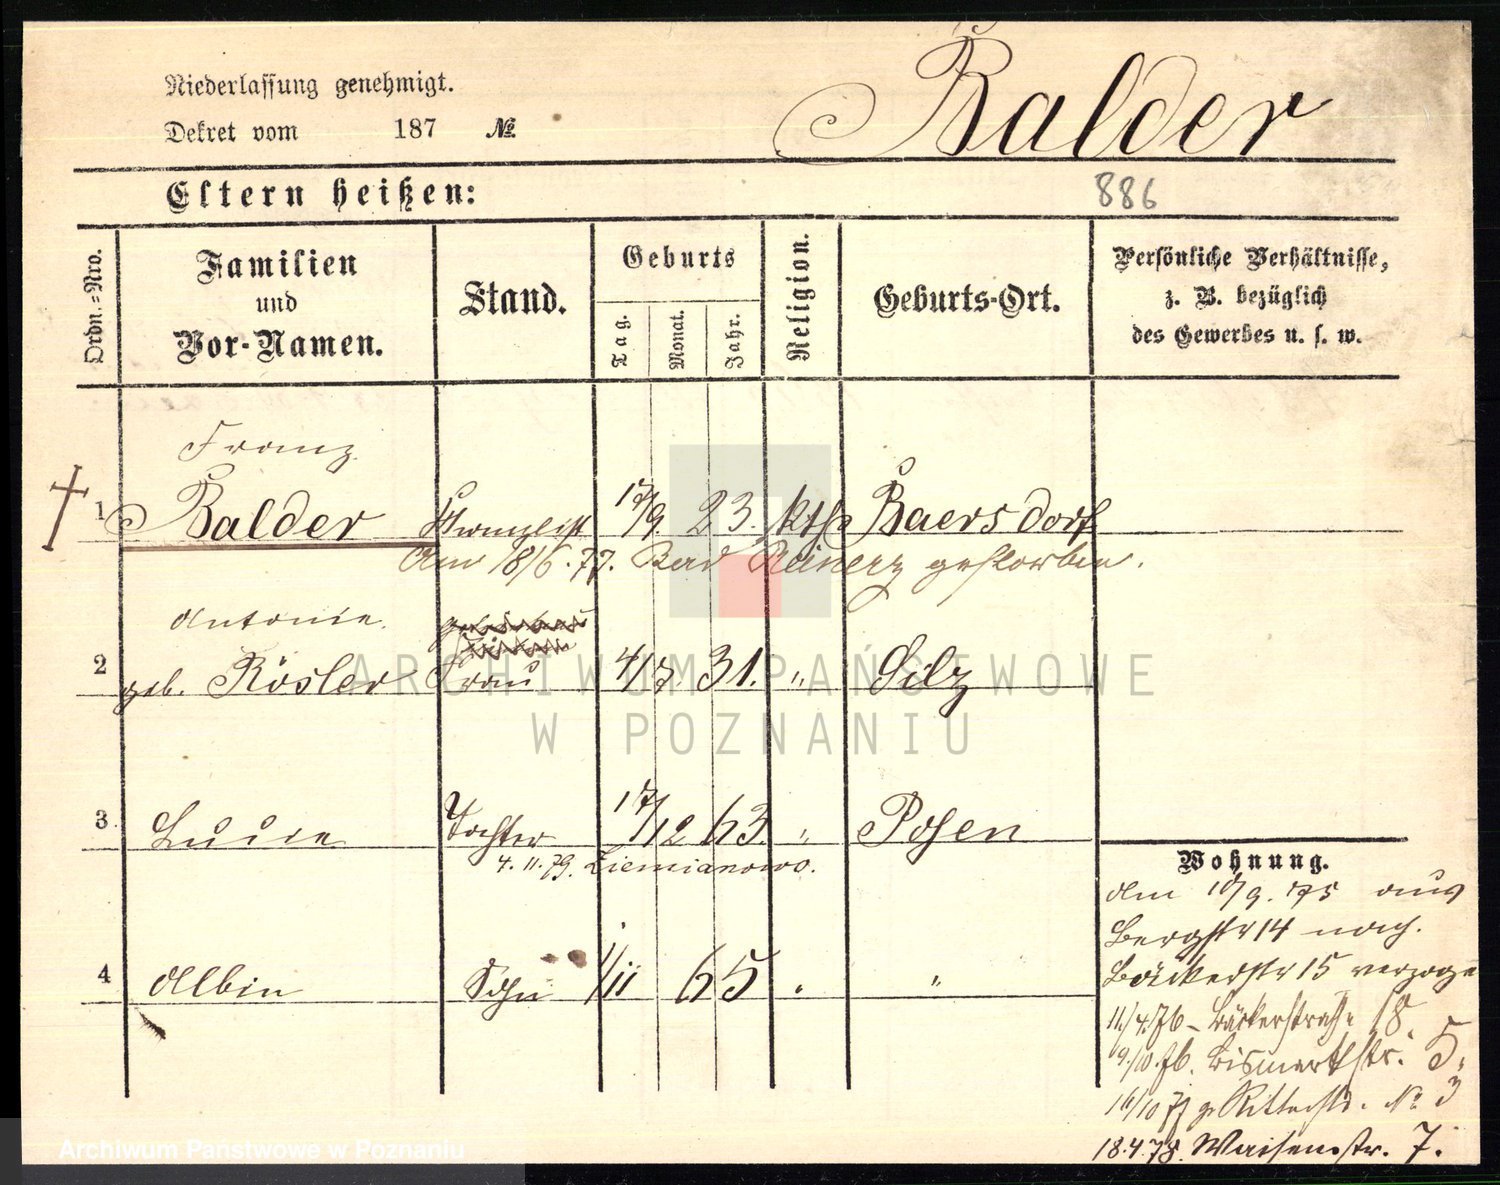 Niederlassung genehmigt.
Dekret vom 187 №
Balder
Eltern heißen:
886
Ordn.=Nro.
Familien
und
Vor-Namen.
Stand.
Geburts
Tag.
Monat.
Jahr.
Religion.
Geburts-Ort.
Persönliche Verhältnisse,
z. B. bezüglich
des Gewerbes u. s. w.
Franz
1 Balder Kanzlist 17/9 23. kth Baersdorf
Am 18/6.77. Bad Reinerz gestorben.
Antonie
2 geb. Rösler Frau 4/7. 31. " Silz
3. Lucie Tochter 17/12 63. " Posen
4. 11. 79. Ziemianowo.
4 Albin Sohn 1/11 65 "
Wohnung.
Am 10/9. 75 aus
Bergstr 14 nach
Bäckerstr 15 verzogen
11/4.76 - Bäckerstraße 18.
9/10.76. Bismarkstr. 5.
16/10 77 Ritterstr. No 3
18.4.78. Waisenstr. 7.
ARCHIWUM PAŃSTWOWE
W POZNANIU
Archiwum Państwowe w Poznaniu